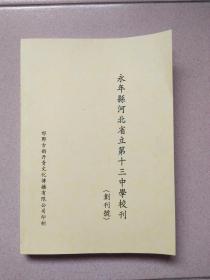 永年縣河北省立第十三中學校刊
(創刊號)
邯鄲古韵丹青文化傳播有限公司印制